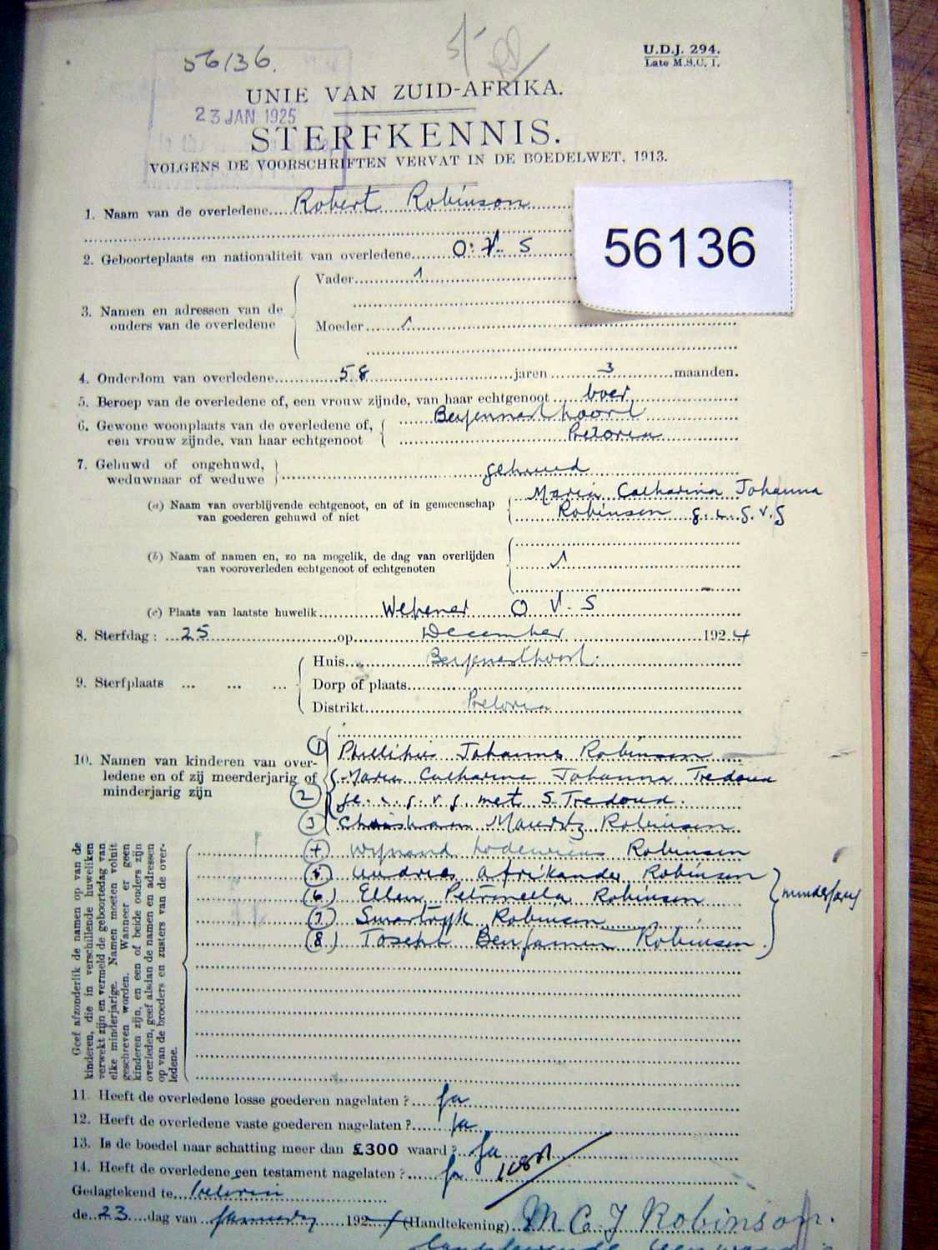 56136.
U.D.J. 294.
Late M.S.C. 1.
UNIE VAN ZUID-AFRIKA.
23 JAN 1925
STERFKENNIS.
VOLGENS DE VOORSCHRIFTEN VERVAT IN DE BOEDELWET, 1913.
1. Naam van de overledene Robert Robinson
56136
2. Geboorteplaats en nationaliteit van overledene O.V.S
3. Namen en adressen van de ouders van de overledene
Vader
Moeder
4. Onderdom van overledene 58 jaren 3 maanden.
5. Beroep van de overledene of, een vrouw zijnde, van haar echtgenoot boer
6. Gewone woonplaats van de overledene of, een vrouw zijnde, van haar echtgenoot
Pretoria
7. Gehuwd of ongehuwd, weduwnaar of weduwe gehuwd
(a) Naam van overblijvende echtgenoot, en of in gemeenschap van goederen gehuwd of niet
Maria Catharina Johanna
Robinson g.i.g.v.g
(b) Naam of namen en, zo na mogelik, de dag van overlijden van vooroverleden echtgenoot of echtgenoten
(c) Plaats van laatste huwelik Wepener O V. S
8. Sterfdag: 25 op December 1924
9. Sterfplaats ... ... ...
Huis
Dorp of plaats
Distrikt Pretoria
10. Namen van kinderen van overledene en of zij meerderjarig of minderjarig zijn
(1) Johannes Robinson
(2) Maria Catharina Johanna Tredoux
ge. i. g. v. g met S. Tredoux.
(3) Mauritz Robinson
(4) Wynand Robinson
(5) Andries Afrikander Robinson
(6) Ellen Petronella Robinson
(7) Robinson
(8) Joseph Benjamin Robinson.
minderjarig
Geef afzonderlik de namen op van de
kinderen, die in verschillende huweliken
verwekt zijn en vermeld de geboortedag van
elke minderjarige. Namen moeten voluit
geschreven worden. Wanneer er geen
kinderen zijn, en een of beide ouders zijn
overleden, geef alsdan de namen en adressen
op van de broeders en zusters van de overledene.
11. Heeft de overledene losse goederen nagelaten? Ja
12. Heeft de overledene vaste goederen nagelaten? Ja
13. Is de boedel naar schatting meer dan £300 waard? Ja
14. Heeft de overledene een testament nagelaten? Ja
Gedagtekend te Pretoria
de 23 dag van January 192 (Handtekening) M C J Robinson.